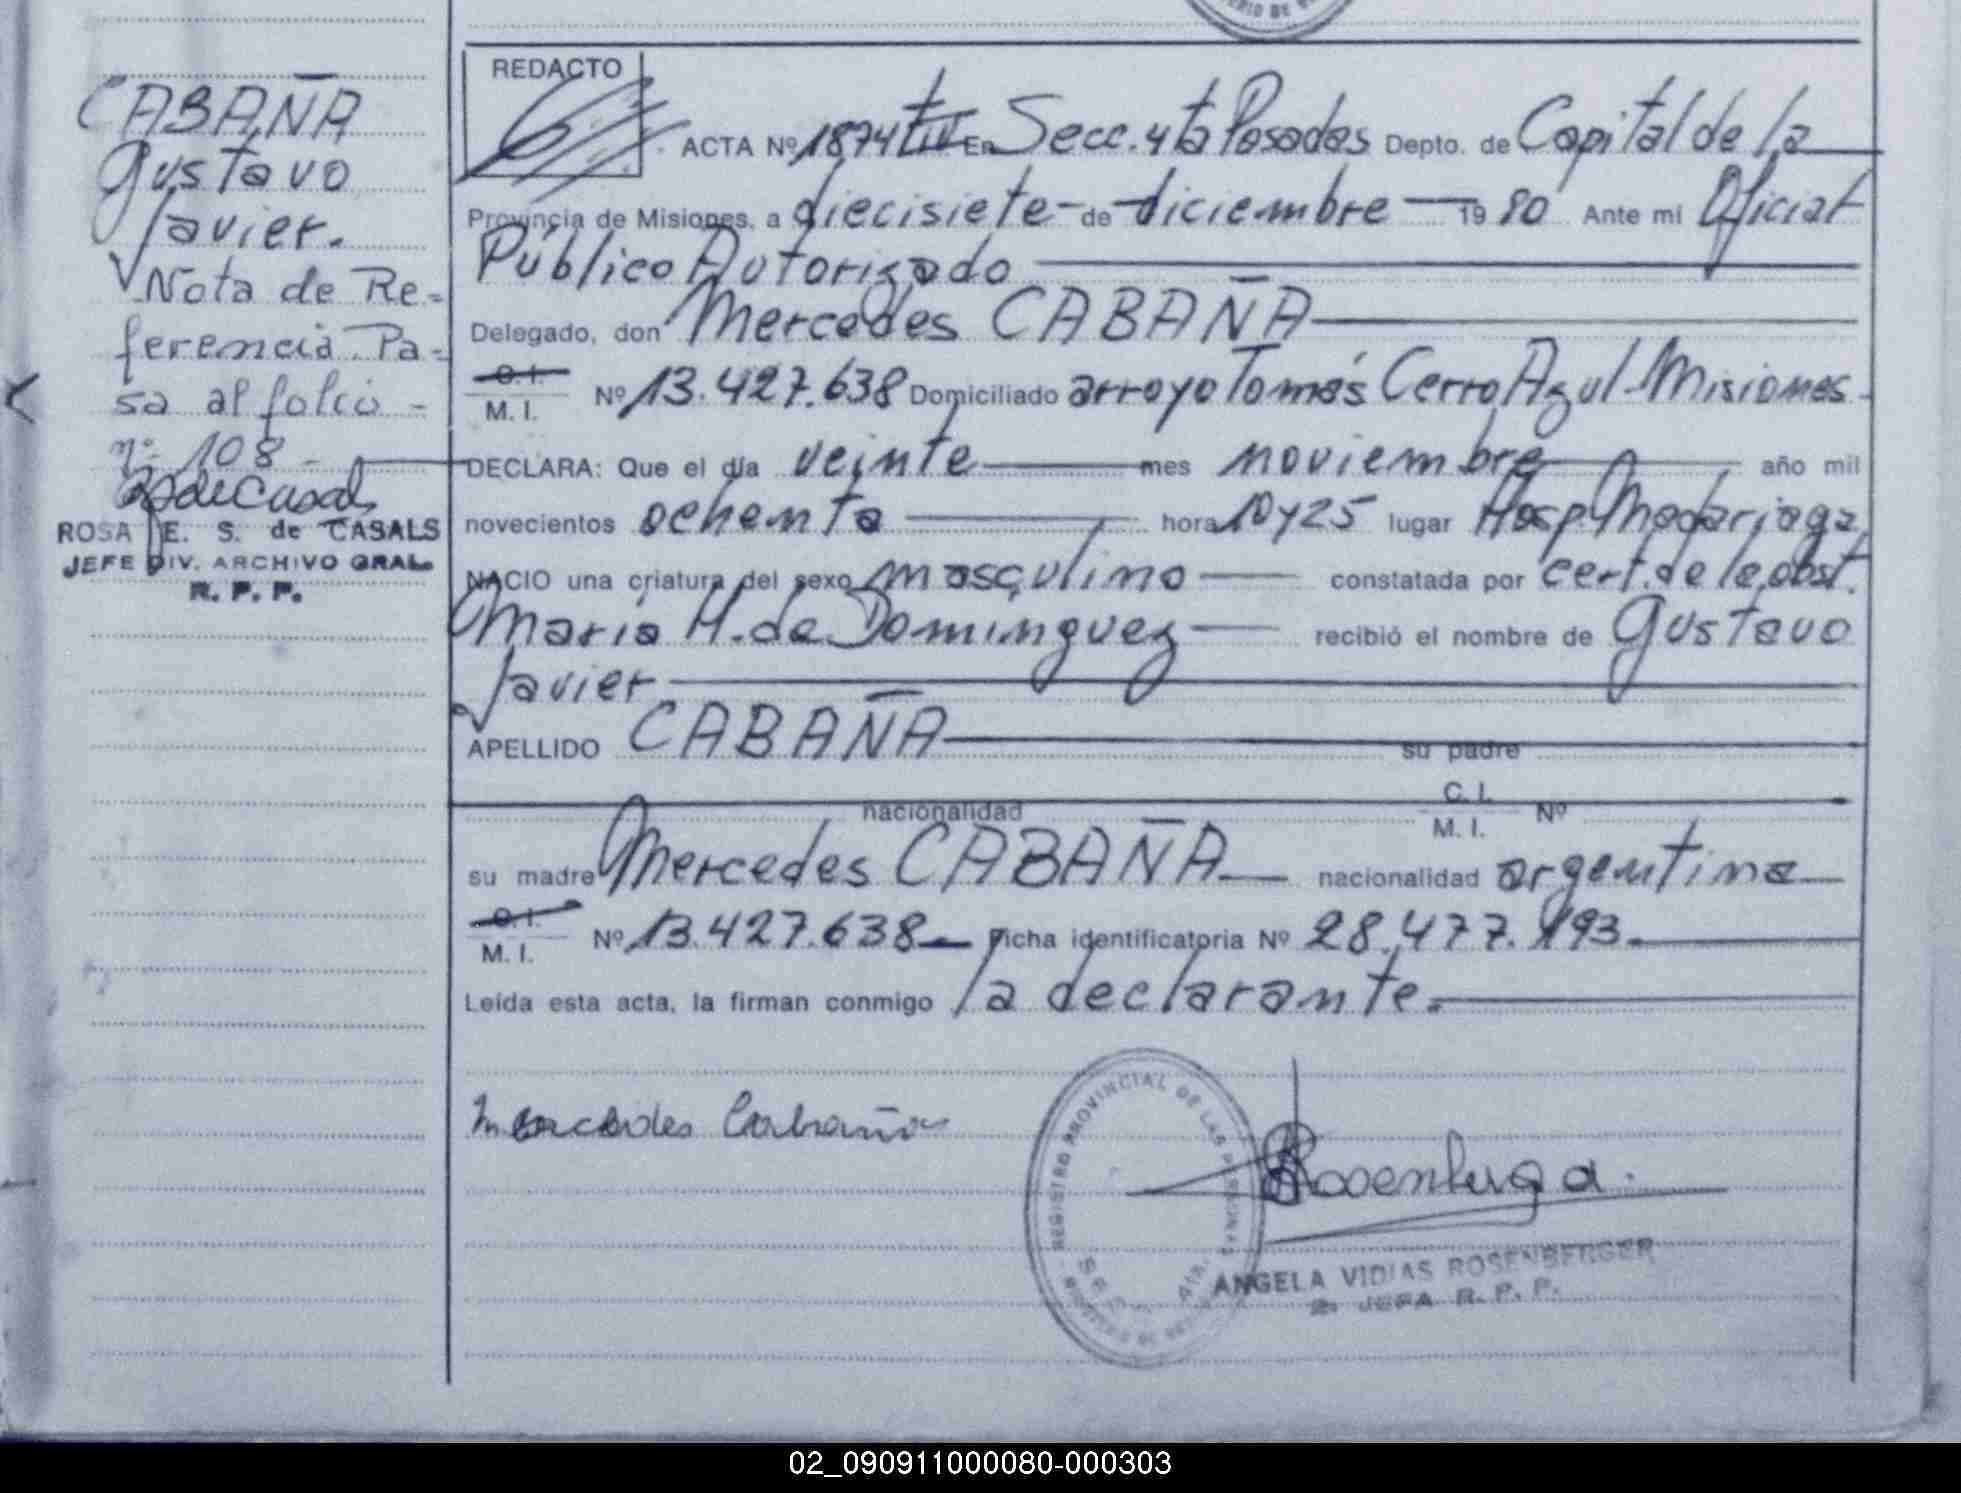 CABAÑA
Gustavo
Javier.
Nota de Re-
ferencia. Pa-
sa al folio -
nº 108 -
ROSA E. S. de CASALS
JEFE DIV. ARCHIVO GRAL.
R. P. P.
REDACTO
ACTA Nº 1874 tIV En Secc. 4ta Posadas Depto. de Capital de la
Provincia de Misiones, a diecisiete - de diciembre 19 80 Ante mi Oficial
Público Autorizado
Delegado, don Mercedes CABAÑA
C. I.
M. I. Nº 13.427.638 Domiciliado arroyo Tomás Cerro Azul - Misiones -
DECLARA: Que el día veinte mes noviembre año mil
novecientos ochenta hora 10 y 25 lugar Hosp. Madariaga
NACIO una criatura del sexo masculino constatada por cert. de la obst.
María H. de Dominguez recibió el nombre de Gustavo
Javier
APELLIDO CABAÑA su padre
nacionalidad C. I.
M. I. Nº
su madre Mercedes CABAÑA nacionalidad argentina
C. I.
M. I. Nº 13.427.638 Ficha identificatoria Nº 28.477.193.
Leída esta acta, la firman conmigo la declarante.
Mercedes Cabaña
REGISTRO PROVINCIAL DE LAS PERSONAS
SECC. 4TA.
ANGELA VIDIAS ROSENBERGER
2. JEFA R. P. P.
02_090911000080-000303